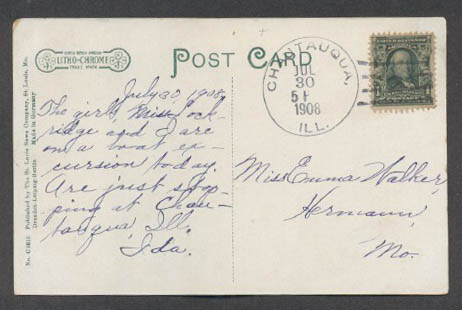 LITHO-CHROME
TRADE MARK
POST CARD
CHAUTAUQUA,
JUL
30
1908
ILL.
1
July 30, 1908.
The girls, Miss Lock-
ridge and I are
on a boat ex-
cursion today.
Are just stop-
ping at Chau-
tauqua, Ill.
Ida.
Miss Emma Walker,
Hermann,
Mo.
Published by The St. Louis News Company, St. Louis, Mo.
Dresden-Leipzig-Berlin Made in Germany